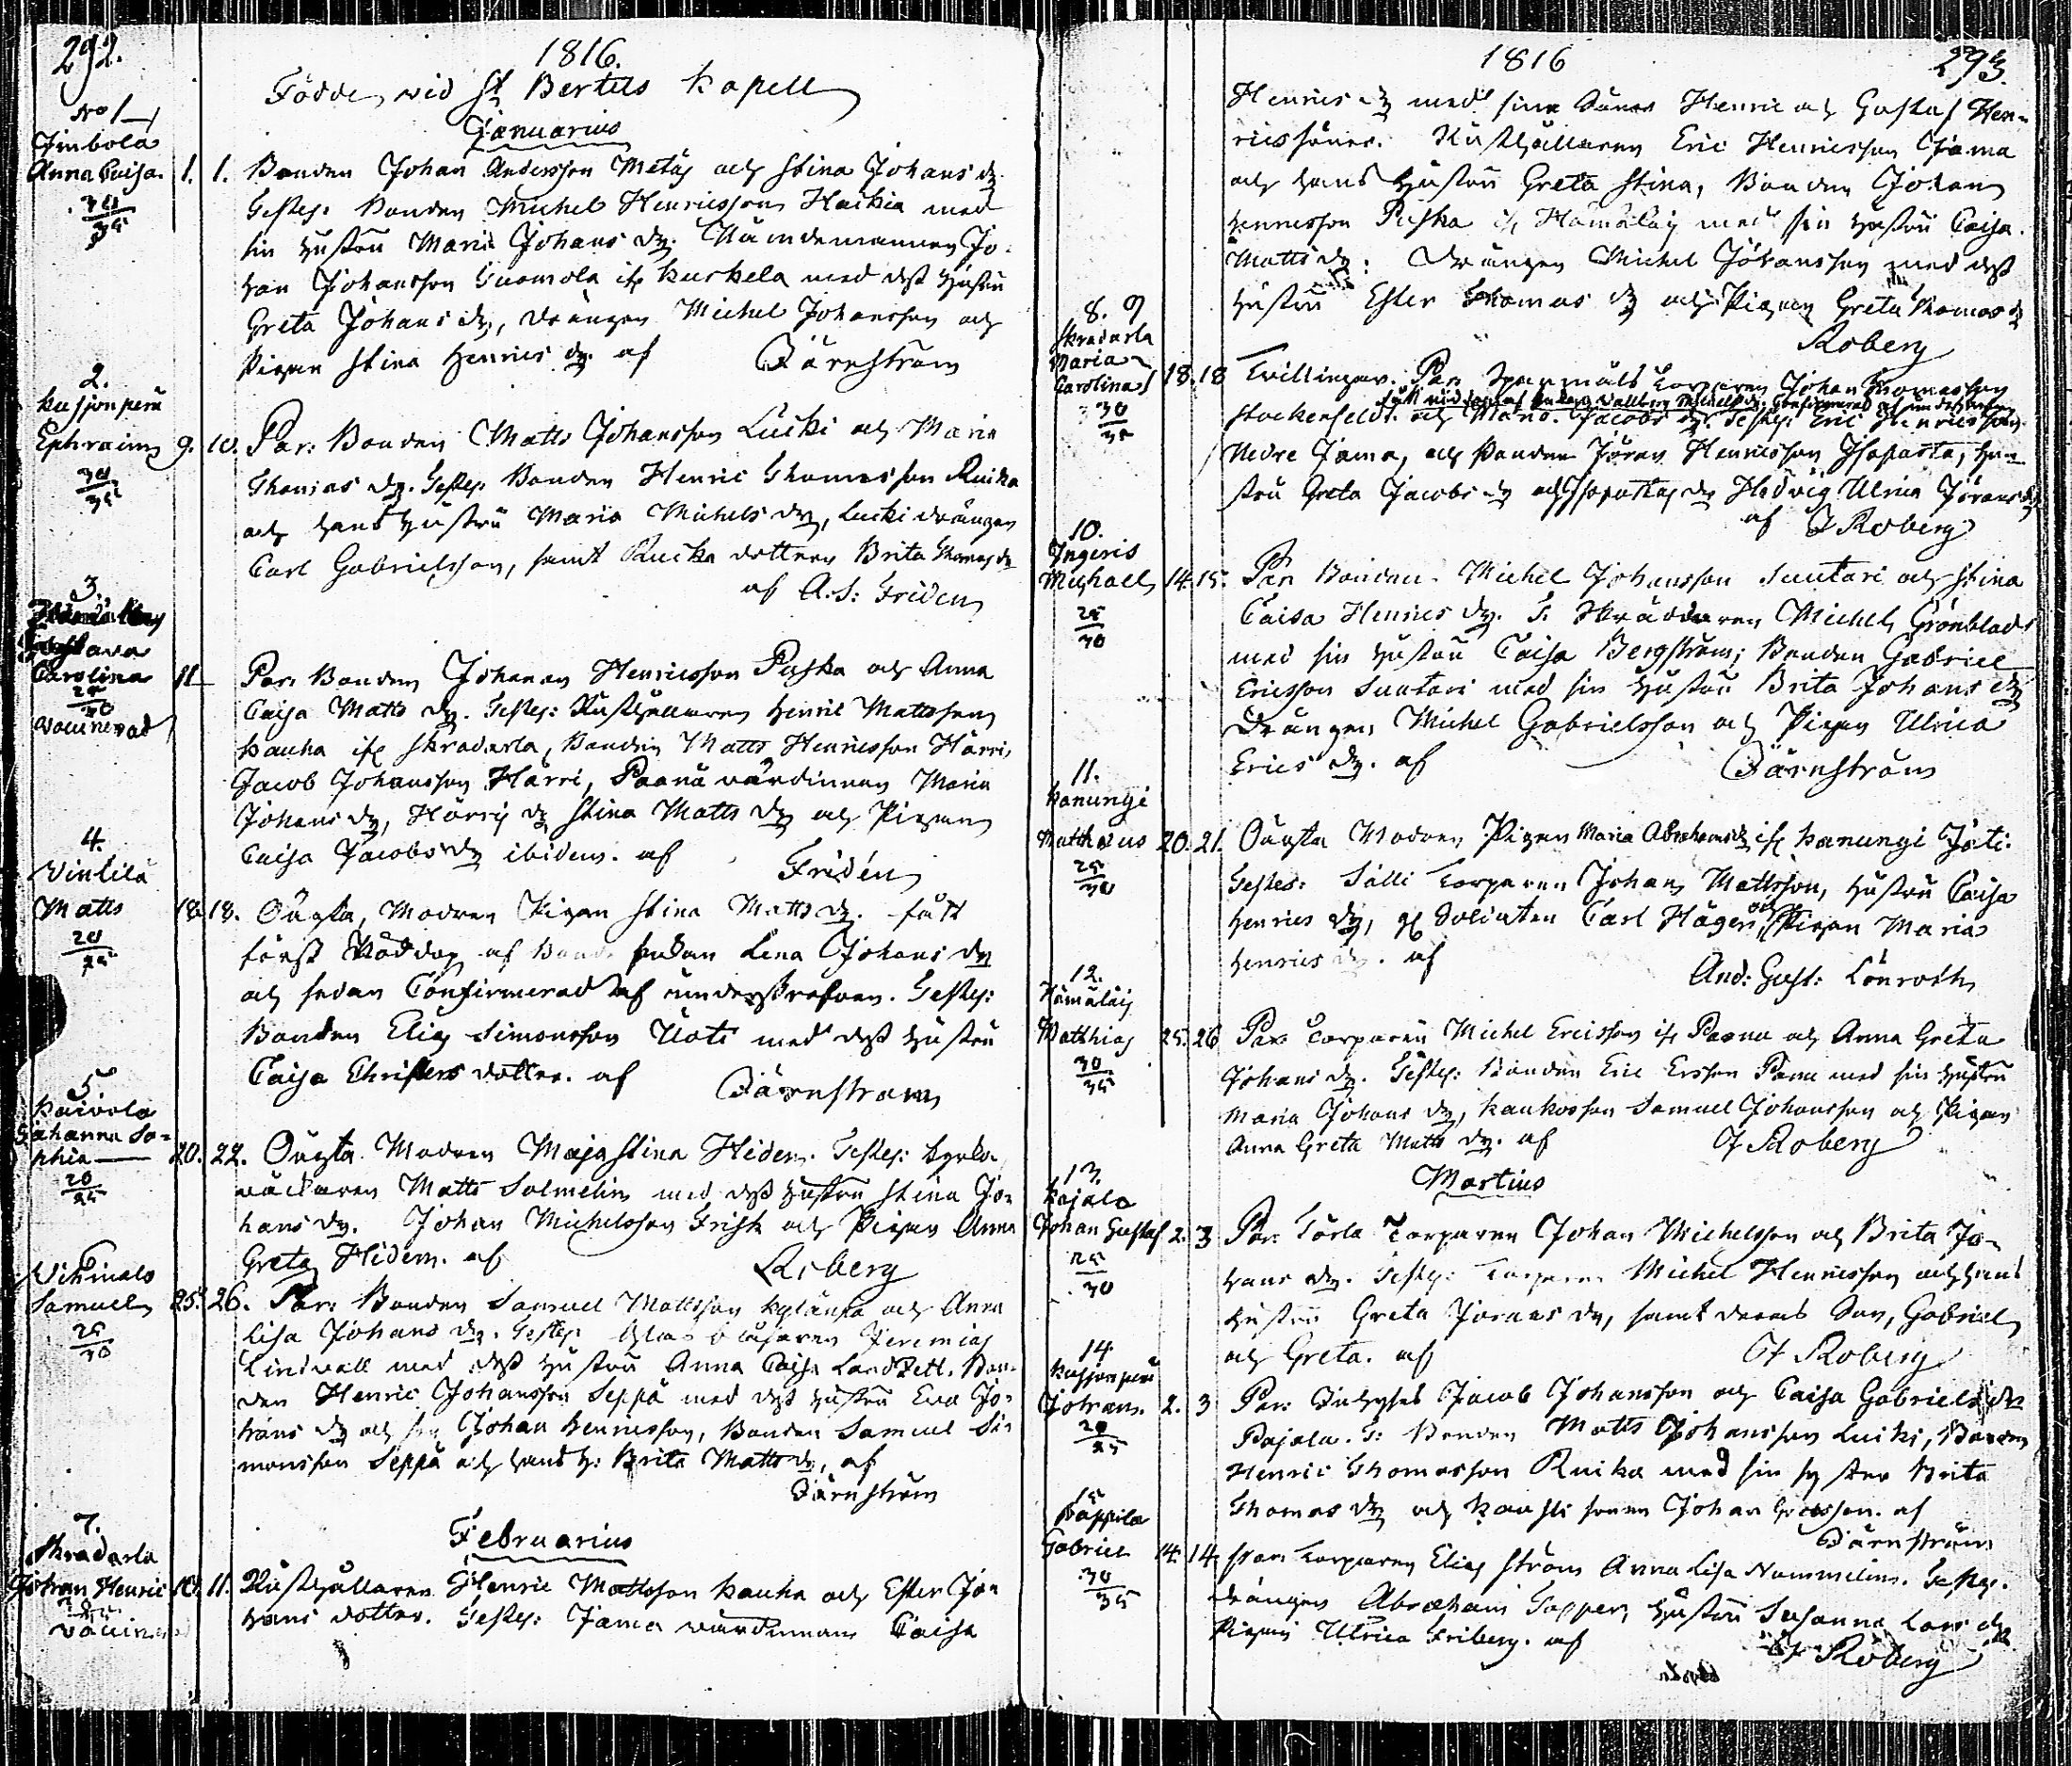 292.
1816.
Födde wid St Bertils Kapell
Januarius
No 1
Jinbola
Anna Caisa. 1. 1. Bonden Johan Andersson Metäs och Stina Johans dr.
30/35
Testes. Bonden Michel Henricsson Hackia med
sin hustru Maria Johans dr. Nämndemannen Jo-
han Johansson Tuomola ifr Kuskela med dess hustru
Greta Johans dr, drängen Michel Johansson och
Pigan Stina Henrics dr. af Bärnström
2.
Kusjonperä
Ephraim 9. 10. Par. Bonden Matts Johansson Lucki och Maria
30/35
Thomas dr. Testes. Bonden Henric Thomasson Ruika
och hans hustru Maria Michels dr, Lucki drängen
Carl Gabrielsson, samt Ruika dottren Brita Thomas dr
af A. J. Friden
3.
Gustava
Carolina 11 Par. Bonden Johan Henricsson Puska och Anna
25/30
Vaccinerad
Caisa Matts dr. Testes: Rusthållaren Henric Mattsson
Kauha ifr Skradarla, Bonden Matts Henricsson Härri,
Jacob Johansson Härri, Paanä värdinnan Maria
Johans dr, Härri dr Stina Matts dr och Pigan
Caisa Jacobs dr ibidem. af Fridén
4.
Vintilä
Matts 18. 18. Oäckta, Modren Pigan Stina Matts dr. fått
20/25
först Nöddop af Bonde enkan Lena Johans dr
och sedan Confirmerad af underskrefven. Testes:
Bonden Elias Simonsson Uoti med dess hustru
Caisa Christers dotter. af Bärnström
5
Kaivola
Johanna So-
phia 20. 22. Oäckta. Modren Maja Stina Hiden. Testes: Kyrko
20/25
väcktaren Matts Solmelin med dess hustru Stina Jo-
hans dr. Johan Michelsson Grisk och Pigan Anna
Greta Hiden. af Roberg
6
Vihinials
Samuel 25. 26. Par. Bonden Samuel Mattsson Kylänpä och Anna
25/30
Lisa Johans dr. Testes Glas blåsaren Jeremias
Lindvall med dess hustru Anna Caisa Landzett. Bon-
den Henric Johansson Seppä med dess hustru Eva Jo-
hans dr och Johan Henricsson, Bonden Samuel Si-
monsson Seppä och hans h. Brita Matts dr, af
Bärnström
Februarius
7.
Skradarla
Johan Henric 10. 11. Rusthållaren Henric Mattsson Kauha och Ester Jo-
hans dotter. Testes: Jama värdinnan Caisa
1816
293.
Henrics dr med sine Söner Henric och Gustaf Hen-
rics söner. Rusthållaren Eric Henricsson Jama
och hans hustru Greta Stina, Bonden Johan
Henricsson Puska ifr Hämäläis med sin hustru Caisa
Matts dr. Drängen Michel Johansson med dess
hustru Ester Thomas dr och Pigan Greta Thomas dr
Roberg
8. 9
Skradarla
Maria
Carolina 18. 18 Tvillingar. Par. Spanmåls Torparen Johan Thomasson
30/35
Stockenfeldt. och Maria Jacobs dr. Testes: Eric Henricsson
Nedre Jama, och Bonden Jöran Henricsson Isopasta, Hu-
stru Greta Jacobs dr och Isopasta dr Hedvig Ulrica Jörans dr
af J Roberg
10.
Ingeris
Michael 14. 15. Par. Bonden Michel Johansson Suutari och Stina
25/30
Caisa Henrics dr. T. Skräddaren Michel Grönblad
med sin hustru Caisa Bergström; Bonden Gabriel
Ericsson Suutari med sin hustru Brita Johans dr
Drängen Michel Gabrielsson och Pigan Ulrica
Erics dr. af Bärnström
11.
Kanungi
Matthæus 20. 21. Oäckta Modren Pigan Maria Abrahams dr ifr Kanungi Jäti.
25/30
Testes: Sälli Torparen Johan Mattsson, hustru Caisa
Henrics dr, gl Soldaten Carl Häger, och Pigan Maria
Henrics dr. af And: Gust: Lönroth
12.
Hämäläis
Matthias 25. 26 Par. Torparen Michel Ericsson ifr Paanu och Anna Greta
30/35
Johans dr. Testes: Bonden Eric Ersson Panu med sin hustru
Maria Johans dr, Kankasson Samuel Johansson och Pigan
Anna Greta Matts dr. af J Roberg
Martius
13.
Kajala
Johan Gustaf 2. 3 Par. Torla Torparen Johan Michelsson och Brita Jo-
25/30
hans dr. Testes: Torparen Michel Henricsson och hans
hustru Greta Jörans dr, samt deras Son, Gabriel
och Greta. af J Roberg
14
Kusjonperä
Johan. 2. 3 Par. Inhyses Jacob Johansson och Caisa Gabriels dr
20/25
Pajala. T: Bonden Matts Johansson Lucki, Bonden
Henric Thomasson Ruika med sin syster Brita
Thomas dr och Kausti sonen Johan Ericsson. af
Bärnström
15
Pappila
Gabriel 14. 14. Par. Torparen Elias Ström Anna Lisa Nummelin. Testes.
30/35
drängen Abraham Topper, hustru Susanna Lars dr
Pigan Ulrica Friberg. af J Roberg